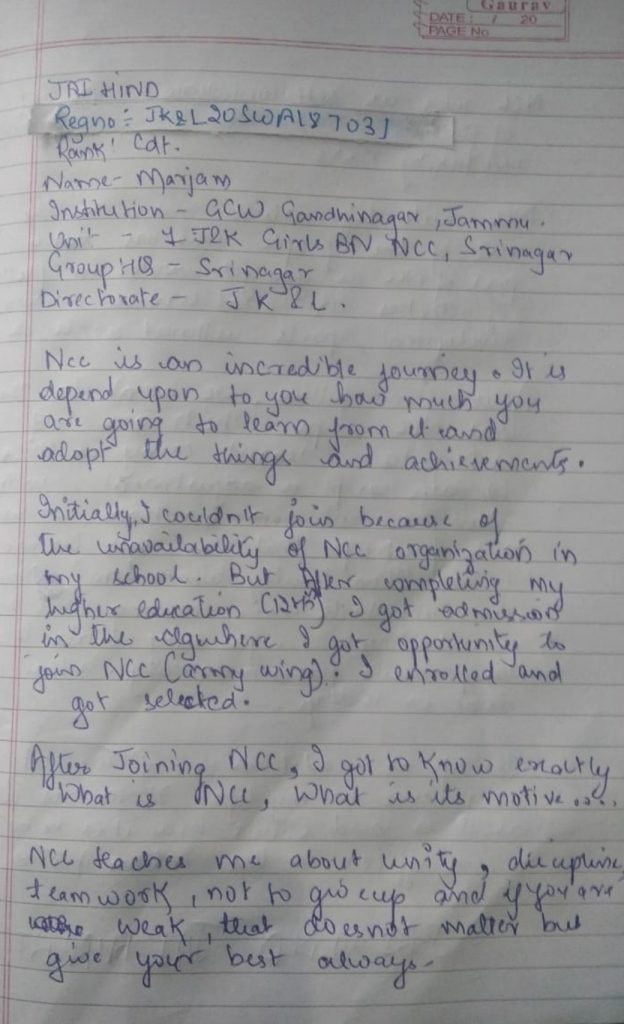 Gaurav
DATE: / 20
PAGE No
JAI HIND
Regno:- JK&L20SWA187031
Rank: Cdt.
Name- Marjam
Institution - GCW Gandhinagar, Jammu.
Unit - 1 J&K Girls BN NCC, Srinagar
Group HQ - Srinagar
Directorate - J K & L.
Ncc is an incredible journey. It is
depend upon to you how much you
are going to learn from it and
adopt the things and achievements.
Initially, I couldn't join because of
the unavailability of NCC organization in
my school. But after completing my
higher education (12th) I got admission
in the clgwhere I got opportunity to
join NCC (army wing). I enrolled and
got selected.
After Joining NCC, I got to know exactly
What is NCC, What is its motive....
NCC teaches me about unity, discipline,
team work, not to give up and if you are
weak, that doesnot matter but
give your best always.